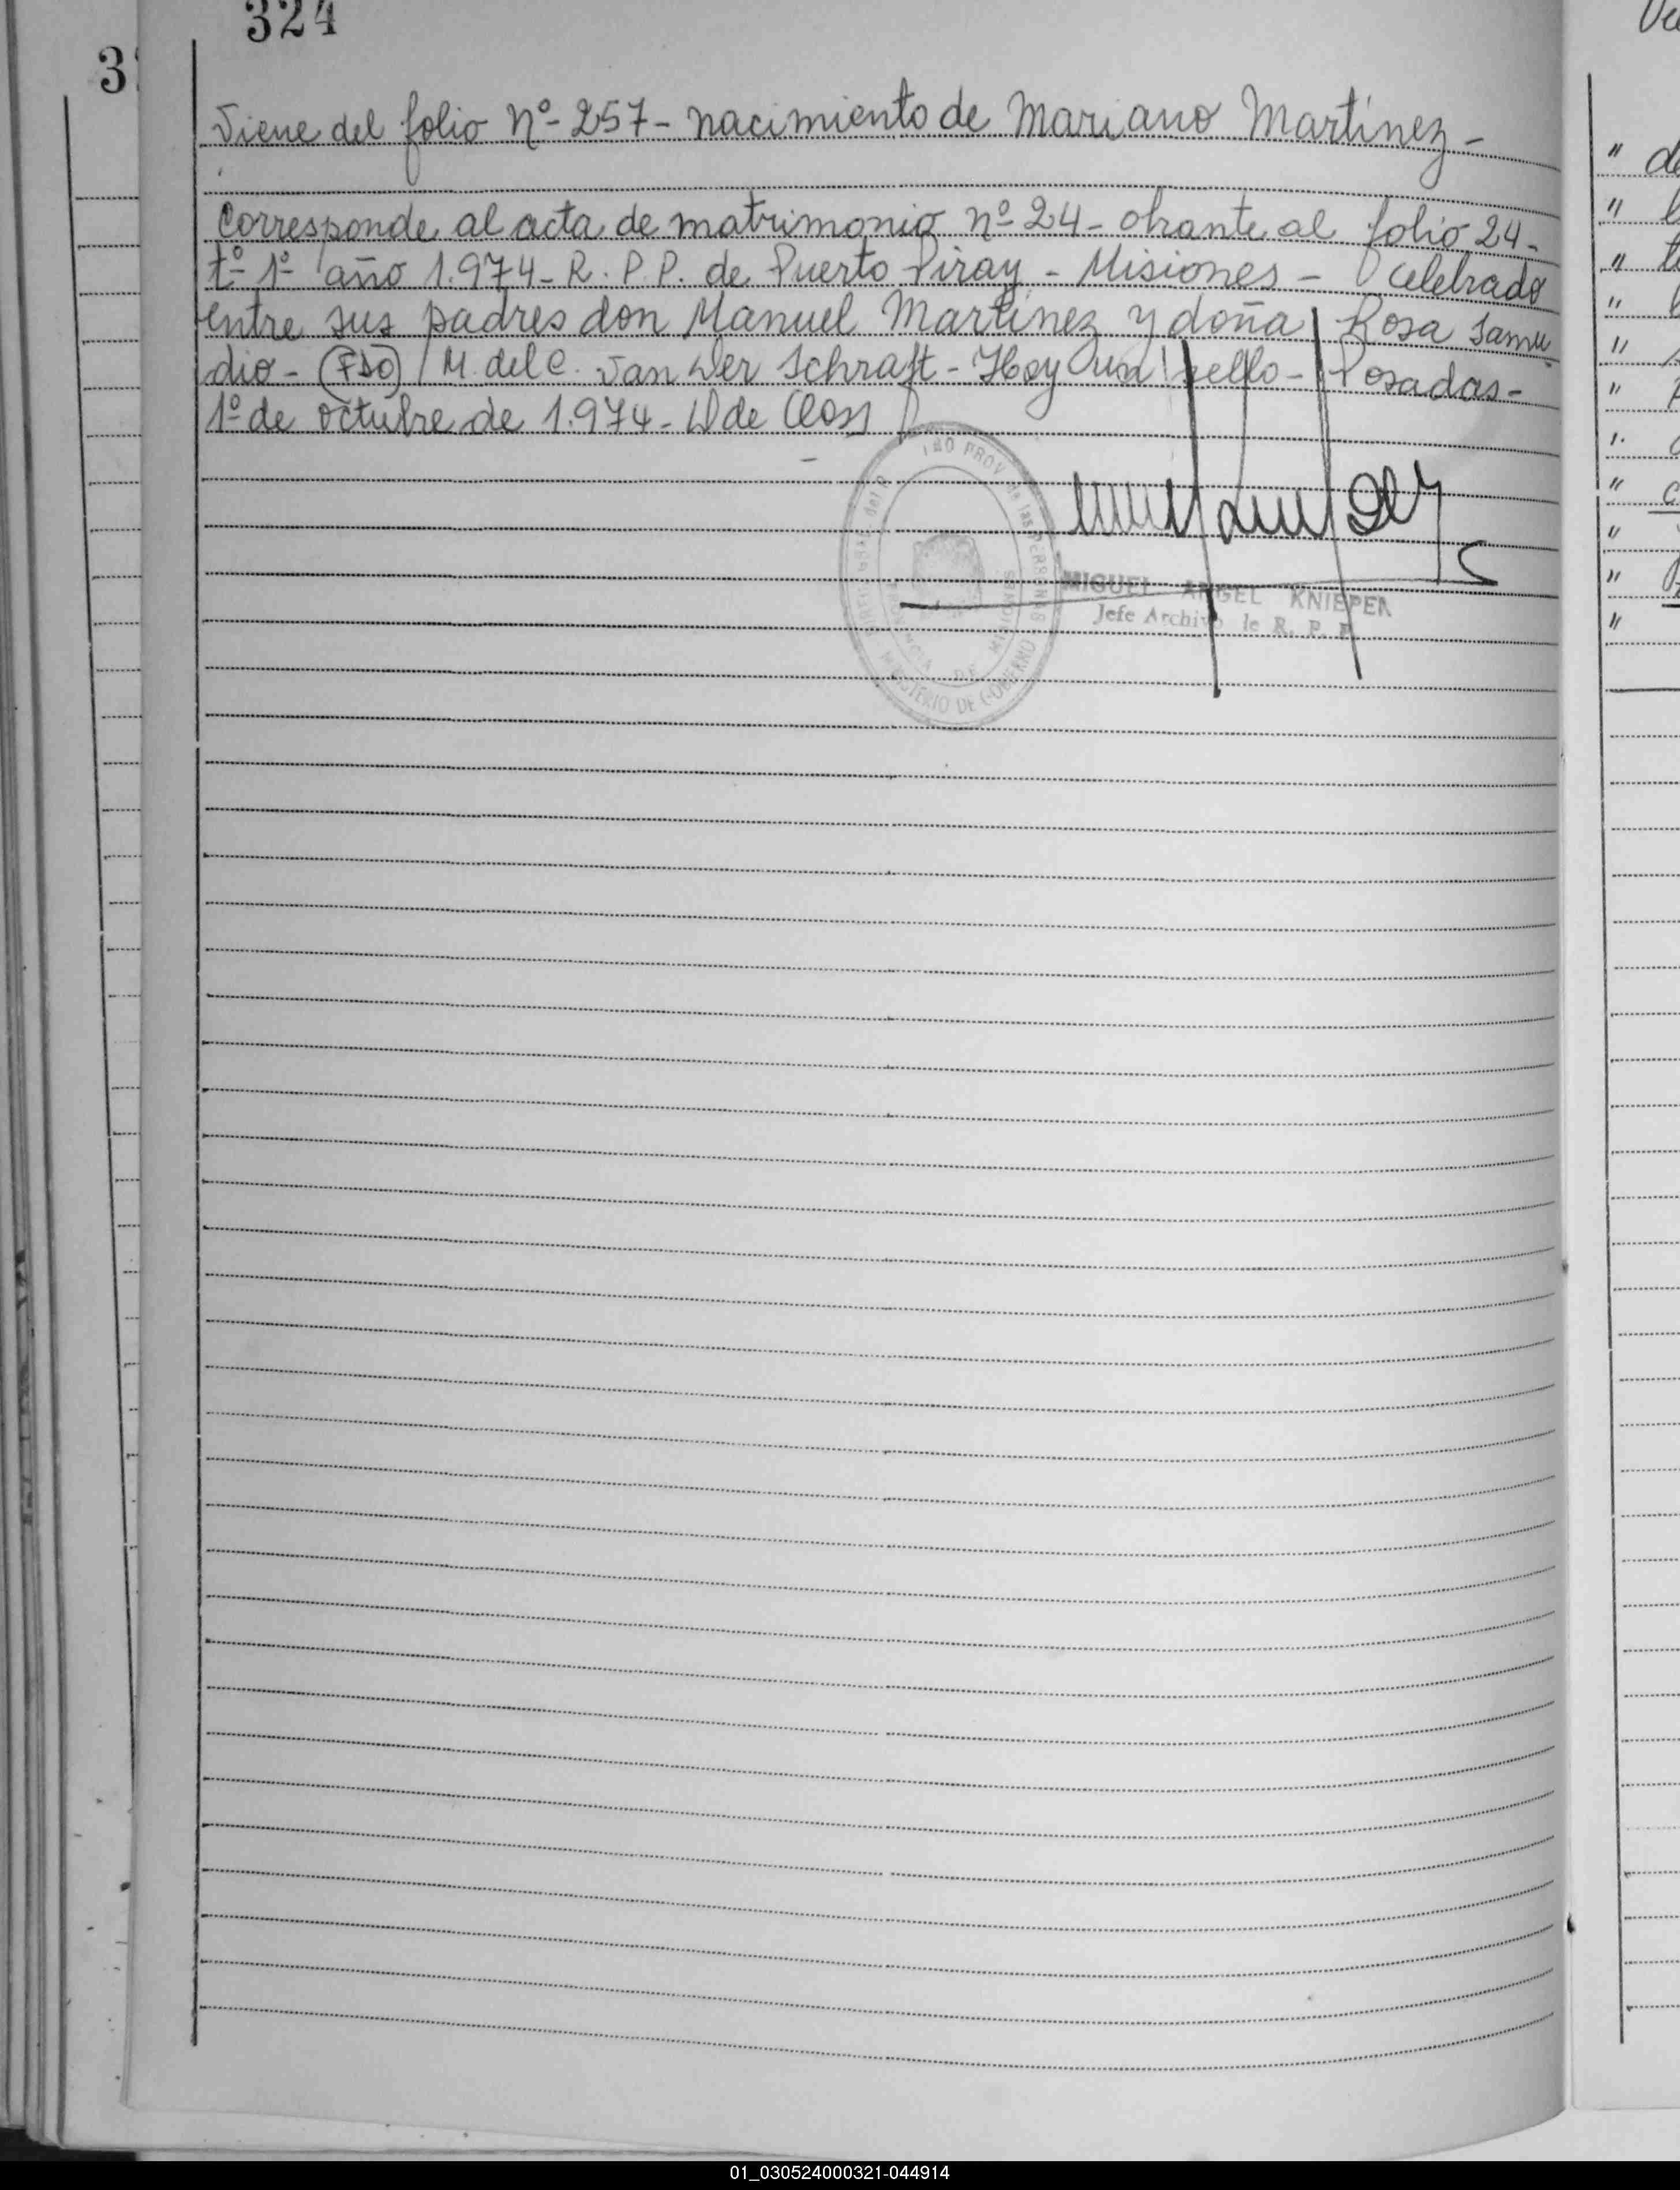 324
Viene del folio Nº- 257- nacimiento de Mariano Martínez -
Corresponde al acta de matrimonio nº 24- obrante al folio 24-
tº- 1º año 1.974- R. P. P. de Puerto Piray - Misiones - celebrado
entre sus padres don Manuel Martínez y doña Rosa Samu
dio - (FDO) M. del C. Van Der Schraft - Hay un sello - Posadas -
1º de octubre de 1.974-
MIGUEL ANGEL KNIEPER
Jefe Archivo de R. P. P.
MINISTERIO DE GOBIERNO
PROVINCIA DE MISIONES
01_030524000321-044914